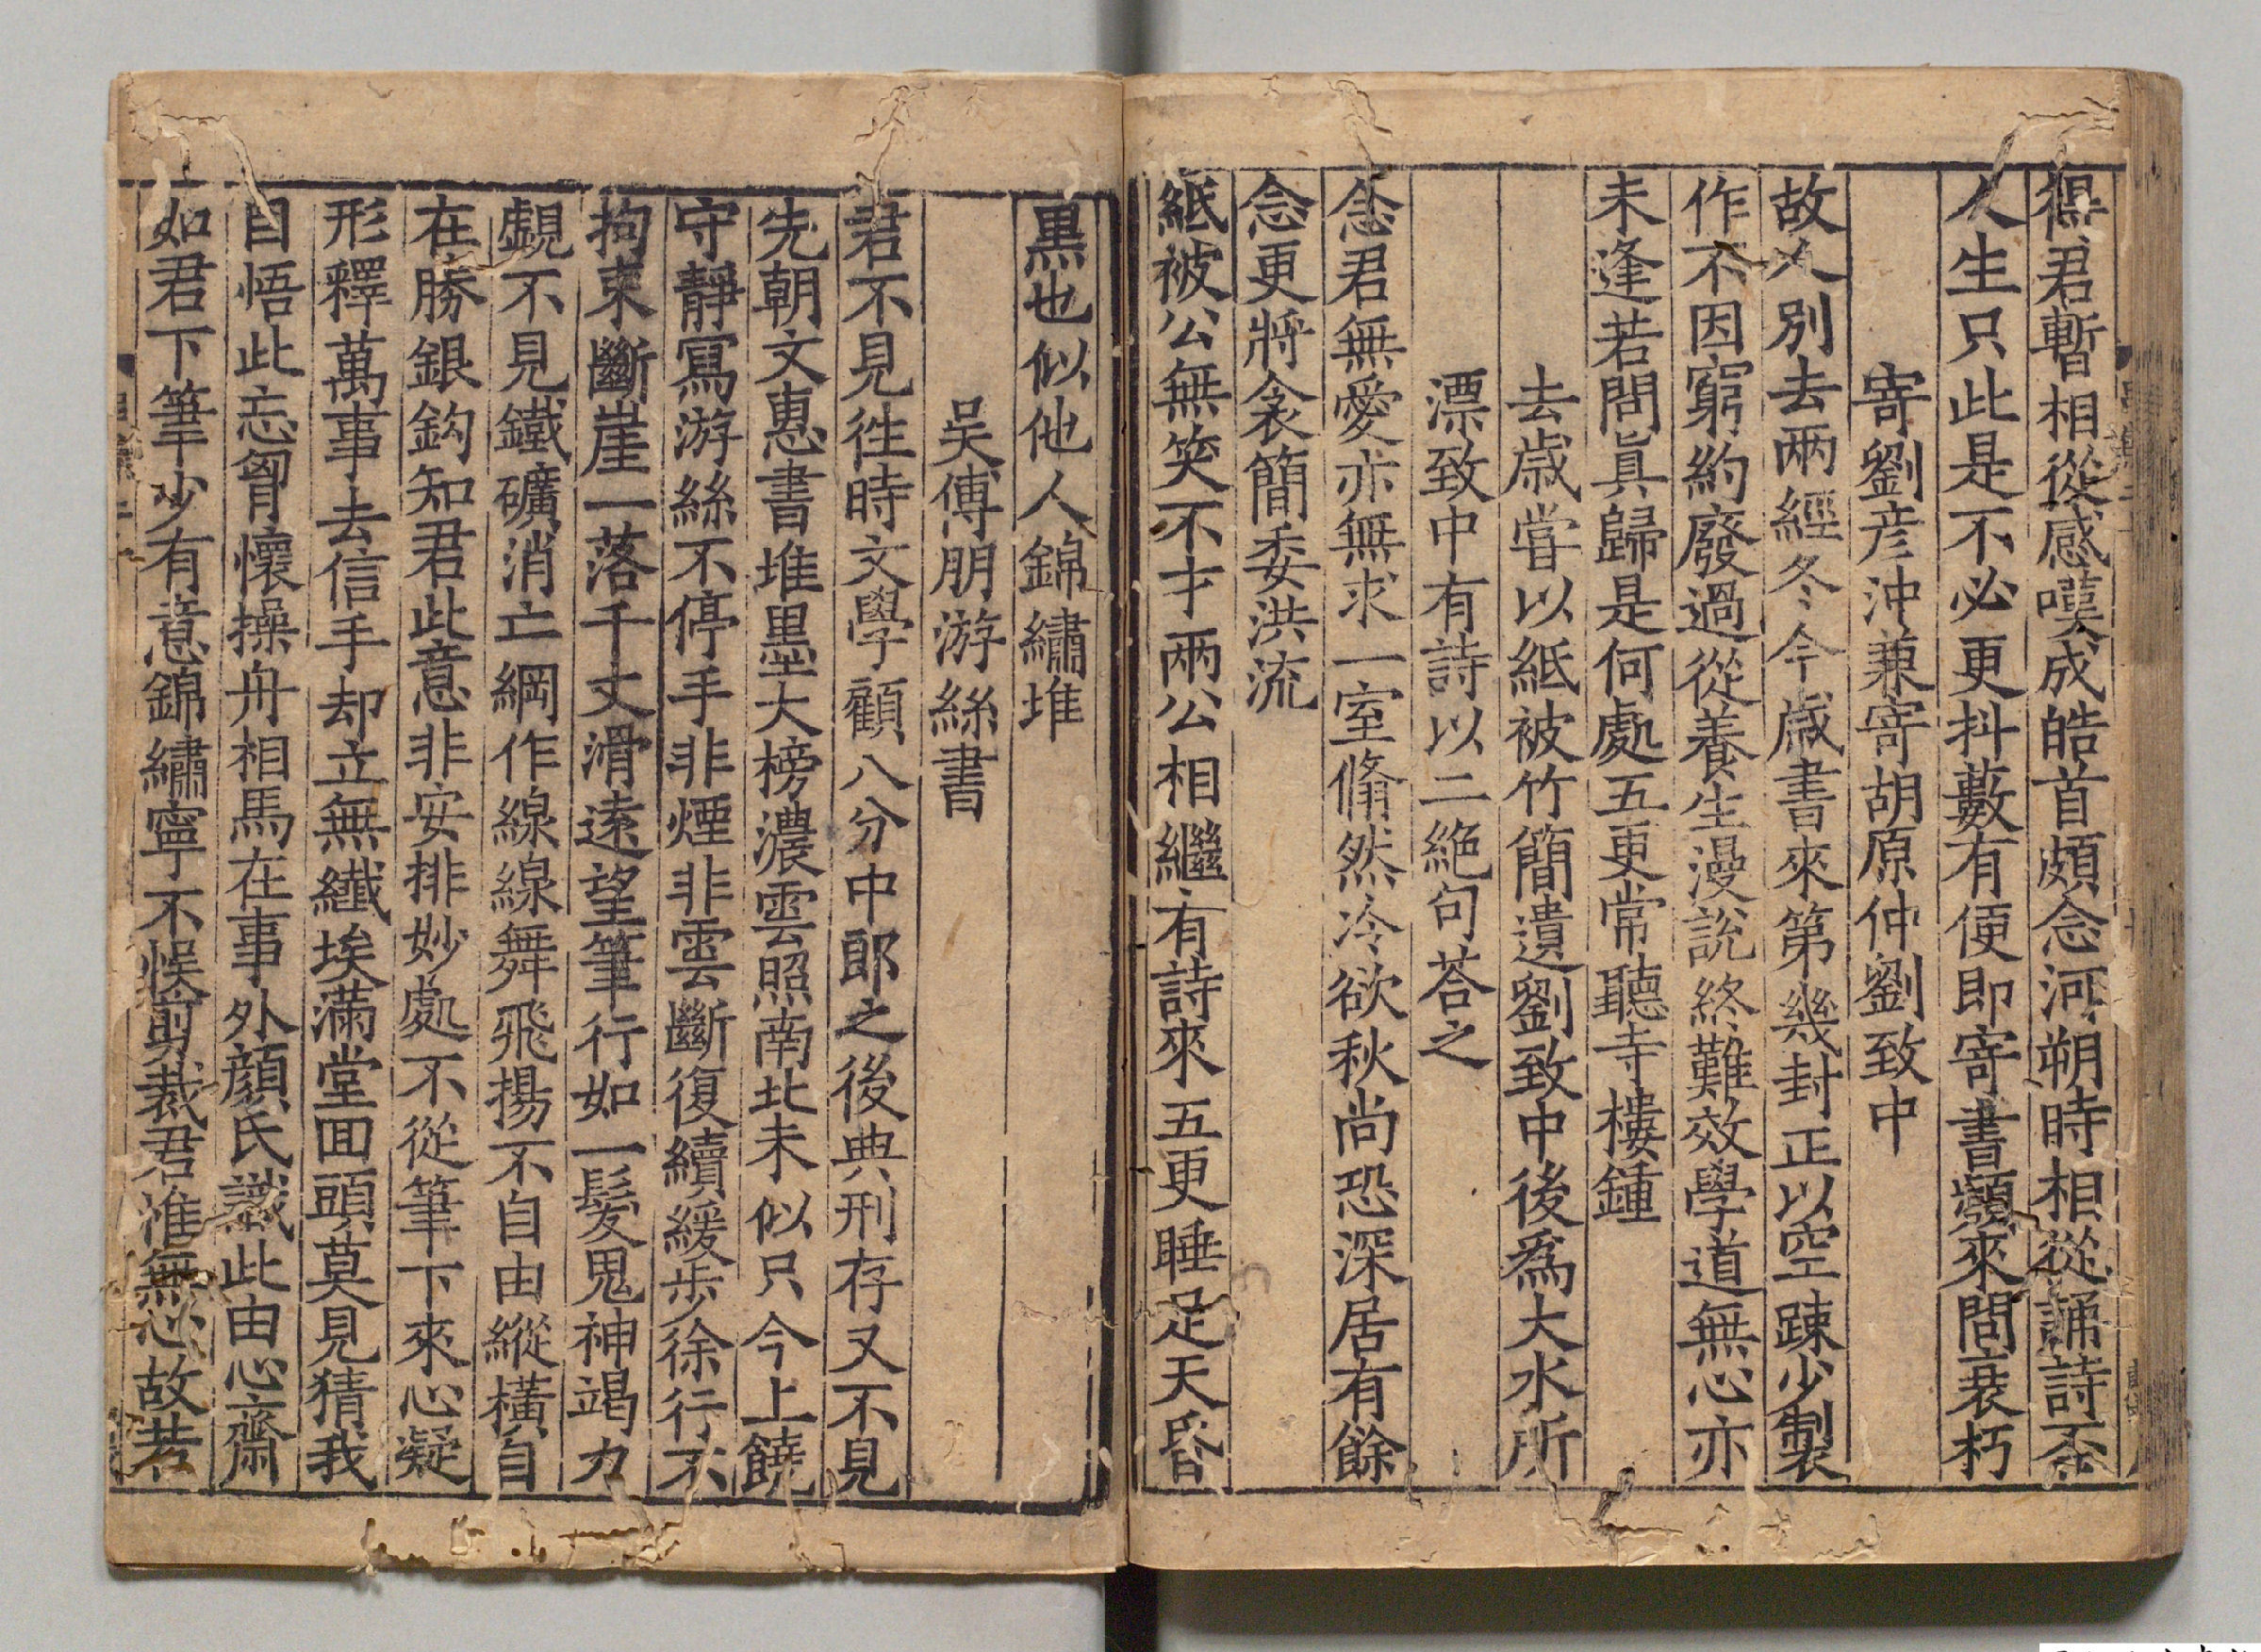 得君暫相從感嘆成皓首頗念河朔時相從誦詩否
人生只此是不必更抖藪有便即寄書顰來問衰朽
寄劉彦沖兼寄胡原仲劉致中
故人別去兩經冬今歲書來第幾封正以空踈少製
作不因窮約廢過從養生漫説終難效學道無心亦
未逢若問眞歸是何處五更常聽寺樓鍾
去歲嘗以紙被竹簡遺劉致中後爲大水所
漂致中有詩以二絶句荅之
念君無愛亦無求一室翛然冷欲秋尚恐深居有餘
念更將衾簡委洪流
紙被公無笑不才兩公相繼有詩來五更睡足天昏
黒也似他人錦繡堆
吳傅朋游絲書
君不見徃時文學顧八分中郎之後典刑存又不見
先朝文惠書堆墨大榜濃雲照南北未似只今上饒
守靜寫游絲不停手非煙非雲斷復續緩步徐行不
拘束斷崖一落千丈滑遠望筆行如一髮鬼神竭力
覷不見鐵礦消亡綱作線線舞飛揚不自由縱橫自
在勝銀鈎知君此意非安排妙處不從筆下來心凝
形釋萬事去信手却立無纎埃滿堂囬頭莫見猜我
自悟此忘胷懷操舟相馬在事外顔氏識此由心齋
如君下筆少有意錦繡寧不悞剪裁君惟無心故若